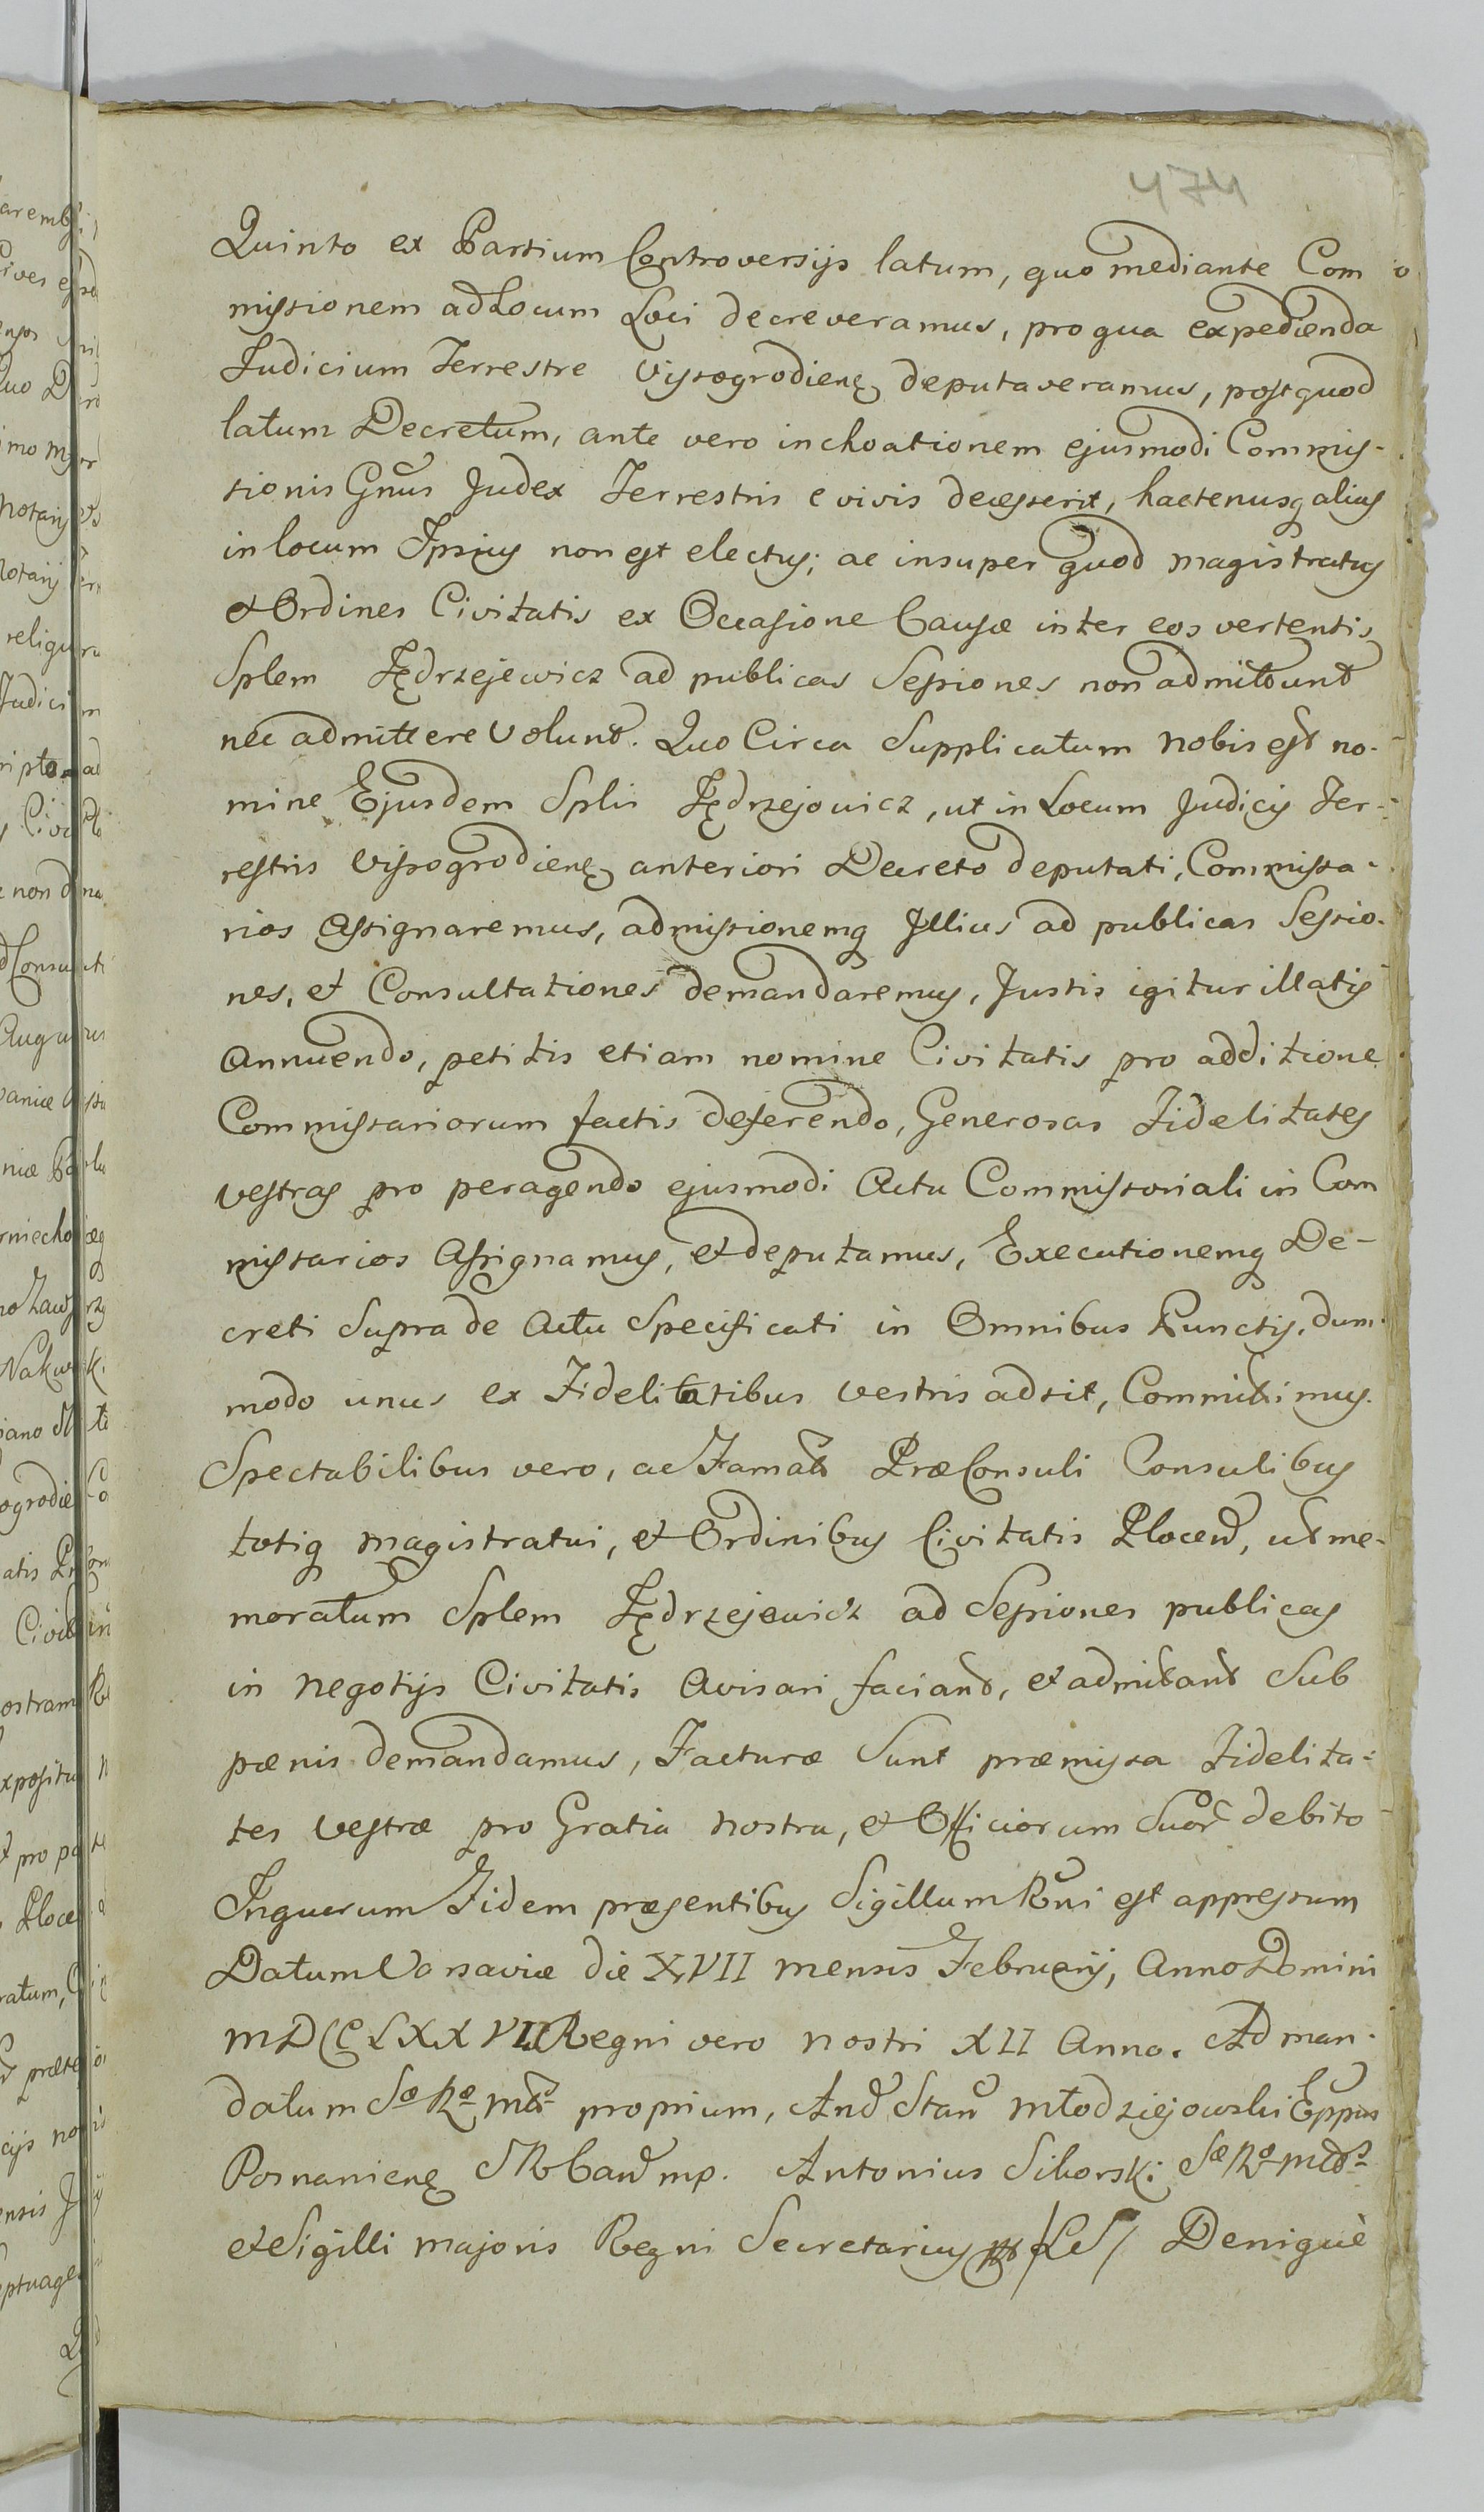 474
Quinto ex Partium Controversijs latum, quo mediante Com
missionem ad Locum Loci decreveramus, pro qua expedienda
Judicium Terrestre Vissogrodiensę deputaveramus, postquod
latum Decretum, ante vero inchoationem ejusmodi Commis-
sionis Gnũs Judex Terrestris e vivis decesserit, hactenusq alius
in locum Ipsius non est electus; ac insuper quod magistratus
et Ordines Civitatis ex Occasione Causæ inter eos vertentis
Splem Jędrzejewicz ad publicas Sessiones non admittunt
nec admittere Volunt. Quo Circa Supplicatum nobis est no-
mine Ejusdem Splis Jędrzejowicz, ut in Locum Judicij Ter-
restris Vissogrodienę anteriori Decreto deputati, Commissa-
rios Assignaremus, admissionemq Illius ad publicas Sessio-
nes, et Consultationes demandaremus, Justis igitur illatis
Annuendo, petitis etiam nomine Civitatis pro additione
Commissariorum factis deferendo, Generosas Fidelitates
vestras pro peragendo ejusmodi Actu Commissoriali in Com
missarios Assignamus, et deputamus, Executionemq De-
creti Supra de Actu Specificati in Omnibus Punctis, dum-
modo unus ex Fidelitatibus vestris adsit, Committimus.
Spectabilibus vero, ac Famatis PræConsuli Consulibus
totiq magistratui, et Ordinibus Civitatis Plocen, ut me-
moratum Splem Jędrzejewicz ad Sessiones publicas
in negotijs Civitatis Avisari faciant, et admittant Sub
pænis demandamus, Facturæ Sunt præmissa Fidelita-
tes Vestræ pro Gratia nostra, et Officiorum Suor debito
Inquorum Fidem præsentibus Sigillum Rni est appressum
Datum Varsaviæ die XVII mensis Februarij, Anno Domini
MDCCLXXVII Regni vero nostri XII Anno. Ad man-
datum Sæ Ræ mtis proprium, And Stan Młodziejowski Eppus
Posnanienę SMR Can mp. Antonius Sikorski Sæ Ræ mtis
et Sigilli majoris Regni Secretarius /LS/ Deniquè